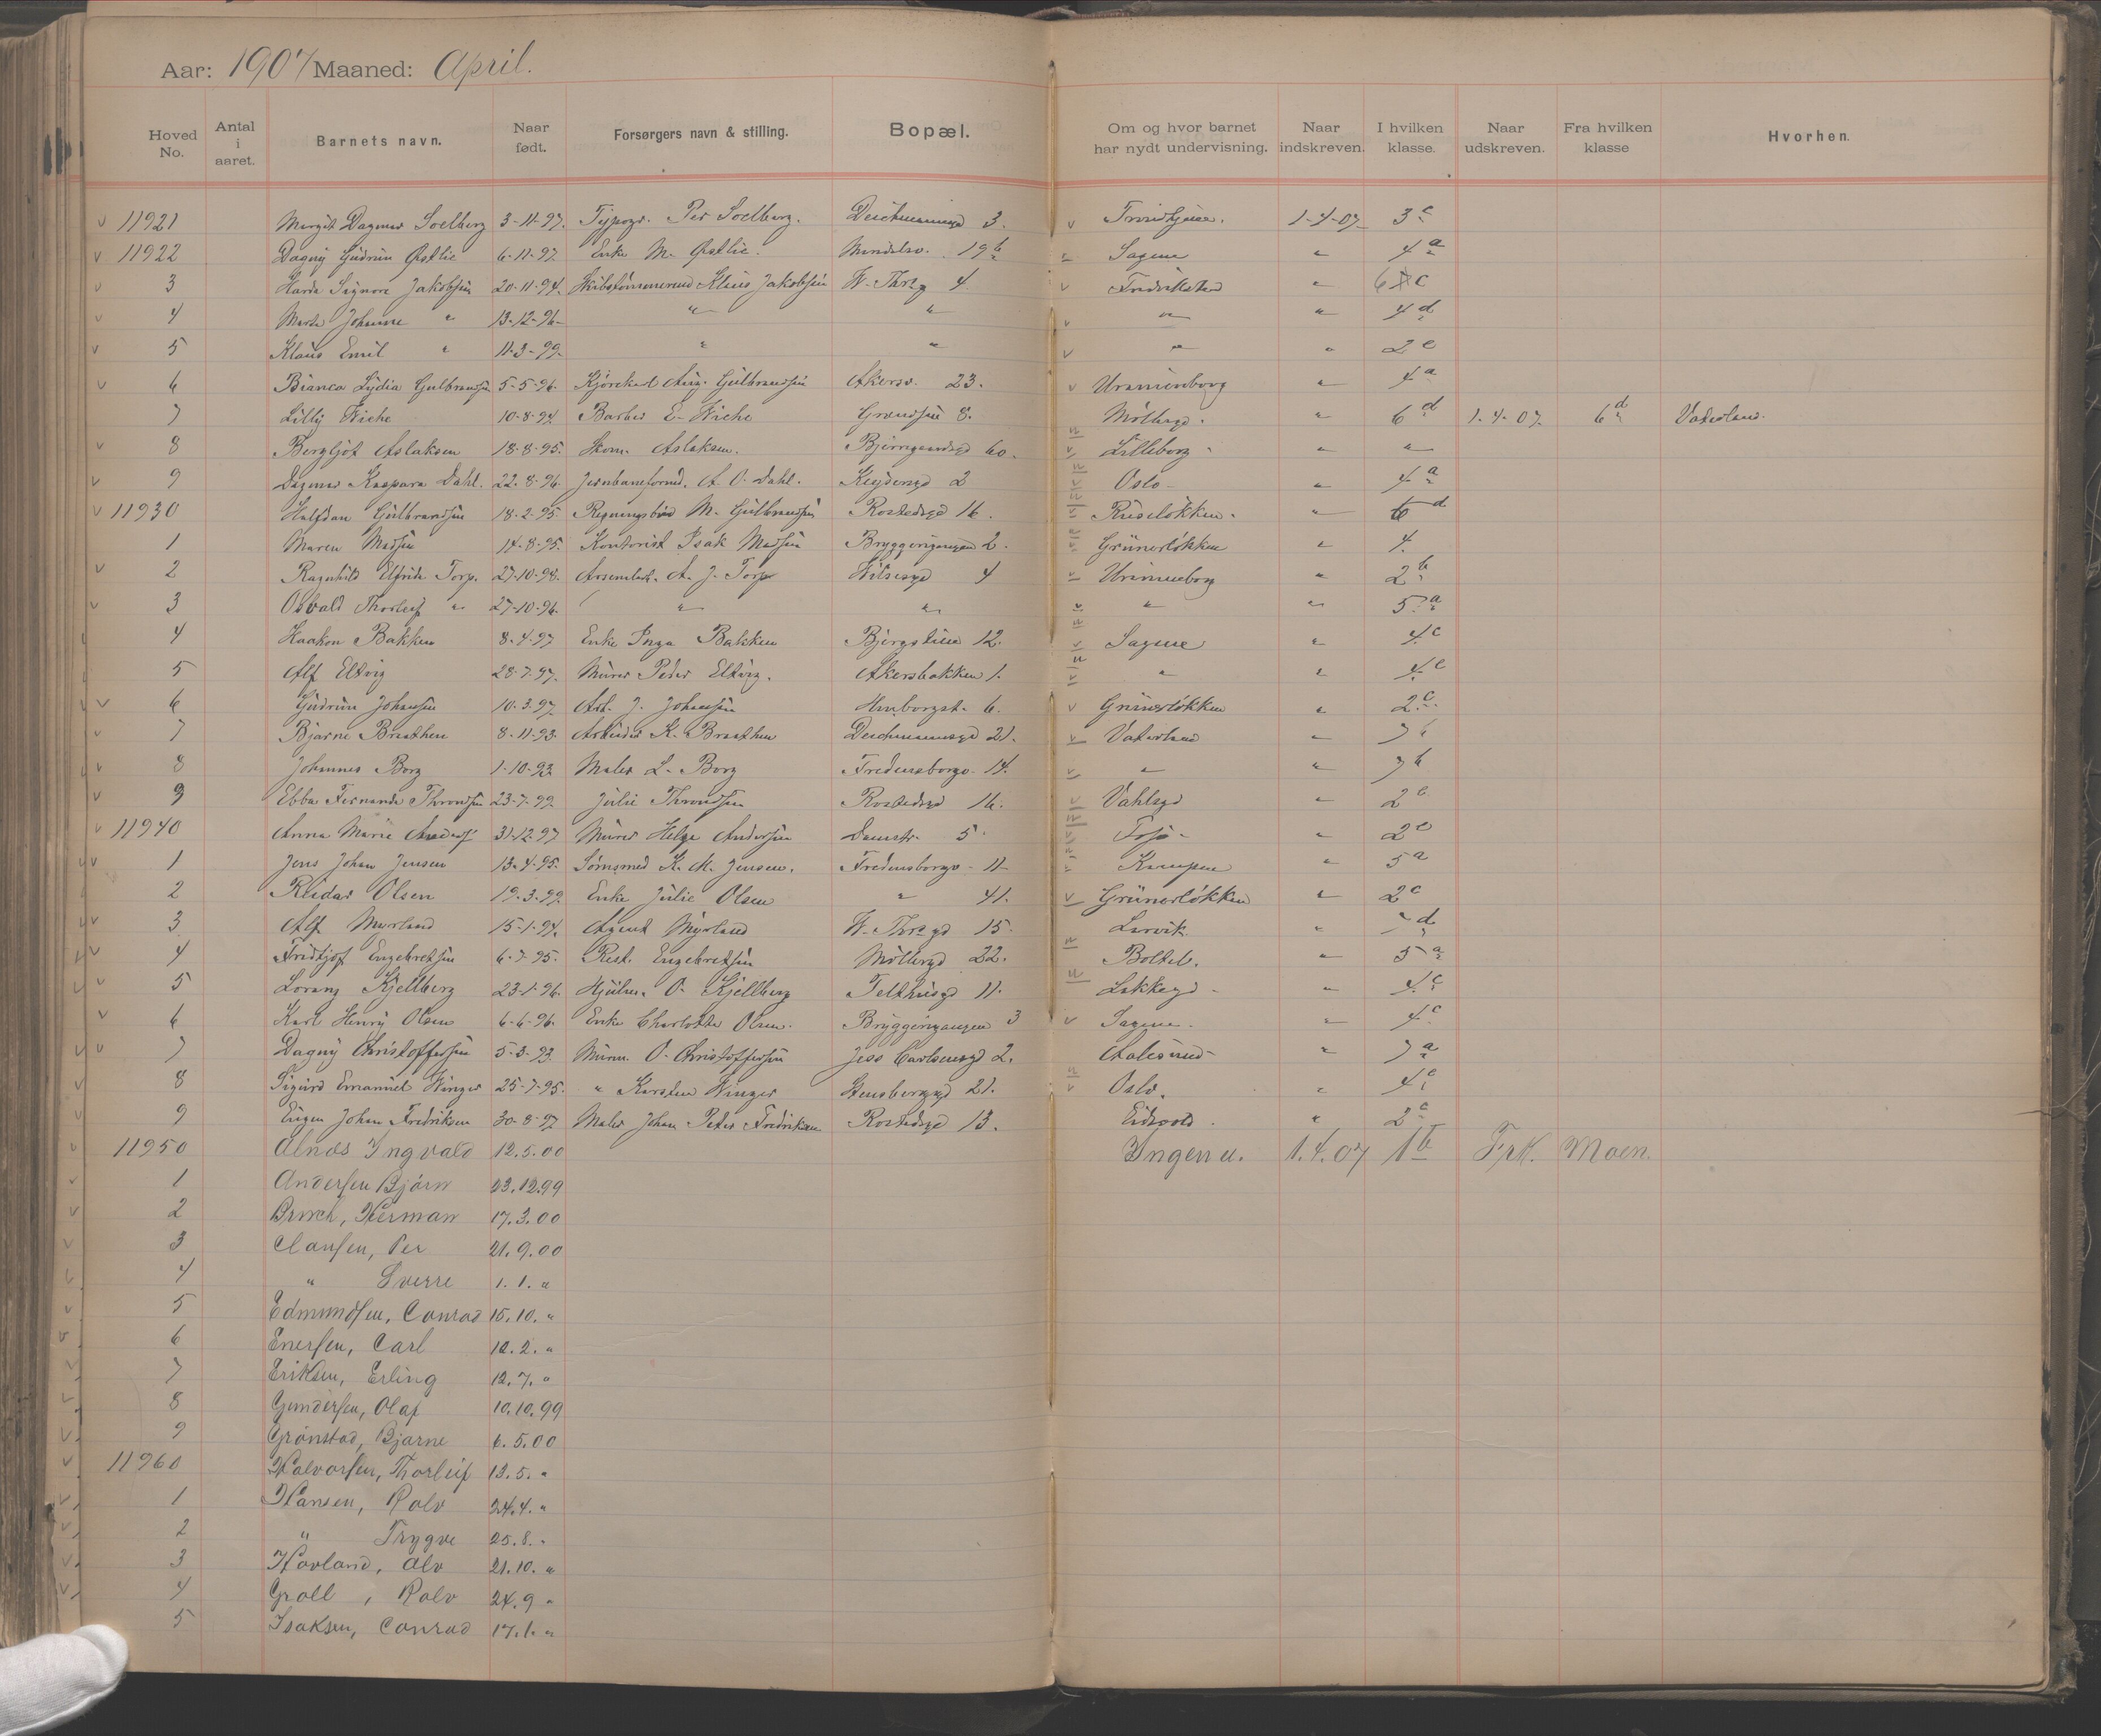 Aar: 1907 Maaned: April.
Hoved No. Antal i aaret. Barnets navn. Naar født. Forsørgers navn & stilling. Bopæl. Om og hvor barnet har nydt undervisning. Naar indskreven. I hvilken klasse. Naar udskreven. Fra hvilken klasse Hvorhen.
v 11921 Margit Dagmar Soelberg 3-11-97. Typogr. Per Soelberg. 3. v Trondhjem. 1-4-07 3 c
v 11922 Dagny Gudrun Østlie 6-11-97. Enke M. Østlie. 19 b Sagene " 4 a
v 3 Signora Jakobsen 20-11-94. Klaus Jakobsen W. Thrsg 4. v Fredrikstad " 6 c
v 4 Marta Johanne " 13-12-96 " " v " " 4 d
v 5 Klaus Emil " 11-3-99. " " v " " 2 c
v 6 Bianca Lydia Gulbrandsen 5-5-96. Kjørekarl Aug. Gulbrandsen Akersv. 23. v Uranienborg " 4 a
7 Lilly Wiche 10-8-94. Barber E. Wiche Grændsen 8. Møllergd. " 6 d 1-4-07. 6 d Vaterland.
v 8 Bergljot Aslaksen 18-8-95. Skom. Aslaksen. 60. v Lilleborg " "
v 9 Dagmar Kaspara Dahl. 22-8-96. Jernbaneformd. A. O. Dahl. Keysersgd 2 Oslo " 4 a
v 11930 Halfdan Gulbrandsen 18-2-95. Regningsbud M. Gulbrandsen Rostedsgd 16. Ruseløkken. " 6 d
1 Maren Madsen 14-8-95. Kontorist Isak Madsen Bryggerigangen 2. Grünerløkken " 4.
v 2 Ragnhild Elfrida Torp. 27-10-98. A. J. Torp Wilsesgd 4 Uranienborg " 2 b
v 3 Osvald Thorleif " 27-10-96. " " " " 5 a
4 Haakon Bakken 8-4-97 Enke Inga Bakken Bjergstien 12. Sagene " 4 c
5 Alf Eltvig 28-7-97. Murer Peder Eltvig. Akersbakken 1. " " 4 c
v 6 Gudrun Johansen 10-3-97. Arb. J. Johansen 6. v Grünerløkken " 2 c
v 7 Bjarne Braathen 8-11-93. Arbeider K. Braathen Deichmansgd 21. Vaterland " 7 b
v 8 Johannes Borg 1-10-93 Maler L. Borg Fredensborgv. 14. v " " 7 b
v 9 Ebba Fernanda Throndsen 23-7-99. Julie Throndsen Rostedsgd 16. Vahlsgd " 2 c
v 11940 Anna Marie Anders 31-12-97 Murer Helge Andersen Damstr. 5. " 2 c
v 1 Jens Johan Jensen 13-4-95. K. M. Jensen. Fredensborgv. 11 Kampen " 5 a
2 Reidar Olsen 19-3-99. Enke Julie Olsen " 41. v Grünerløkken " 2 c
v 3 Alf Myrland 15-1-94. Agent Myrland W. Thrsgd 15. Larvik " d
v 4 Fridtjof Engebretsen 6-7-95. Rest. Engebretsen Møllergd 22. Boltel. " 5 a
v 5 Lorang Kjellberg 23-1-96. O. Kjellberg Telthusgd 11. Lakkegd " 4 c
v 6 Karl Henry Olsen 6-6-96. Enke Charlotte Olsen. Bryggerigangen 3 v Sagene. " 4 c
v 7 Dagny Christoffersen 5-3-93. Murm. O. Christoffersen Jess Carlsensgd 2. Aalesund " 7 a
8 Sigurd Emanuel Winger 25-7-95. " Karsten Winger Stensberggd 21. v Oslo. " 4 c
9 Eugen Johan Fredriksen 30-8-97 Maler Johan Peter Fredriksen Rostedsgd 13. Eidsvold. " 2 c
11950 Alnæs Ingvald 12.5.00 Ingen u. 1.4.07 1 b Frk. Moen.
1 Andersen Bjørn 23.12.99
2 Herman 17.3.00
3 Clausen, Per 21.9.00
4 " Sverre 1.1. "
5 Edmundsen, Conrad 15.10. "
6 Enersen, Carl 12.2. "
7 Eriksen, Erling 12.7. "
8 Gundersen, Olaf 10.10.99
9 Grønstad, Bjarne 6.5.00
11960 Halvorsen, Thorleif 13.5. "
1 Hansen, Rolv 24.4. "
2 " Trygve 25.8. "
3 Hovland, Alv 21.10. "
4 Groll, Rolv 24.9 "
5 Isaksen, Conrad 17.1. "